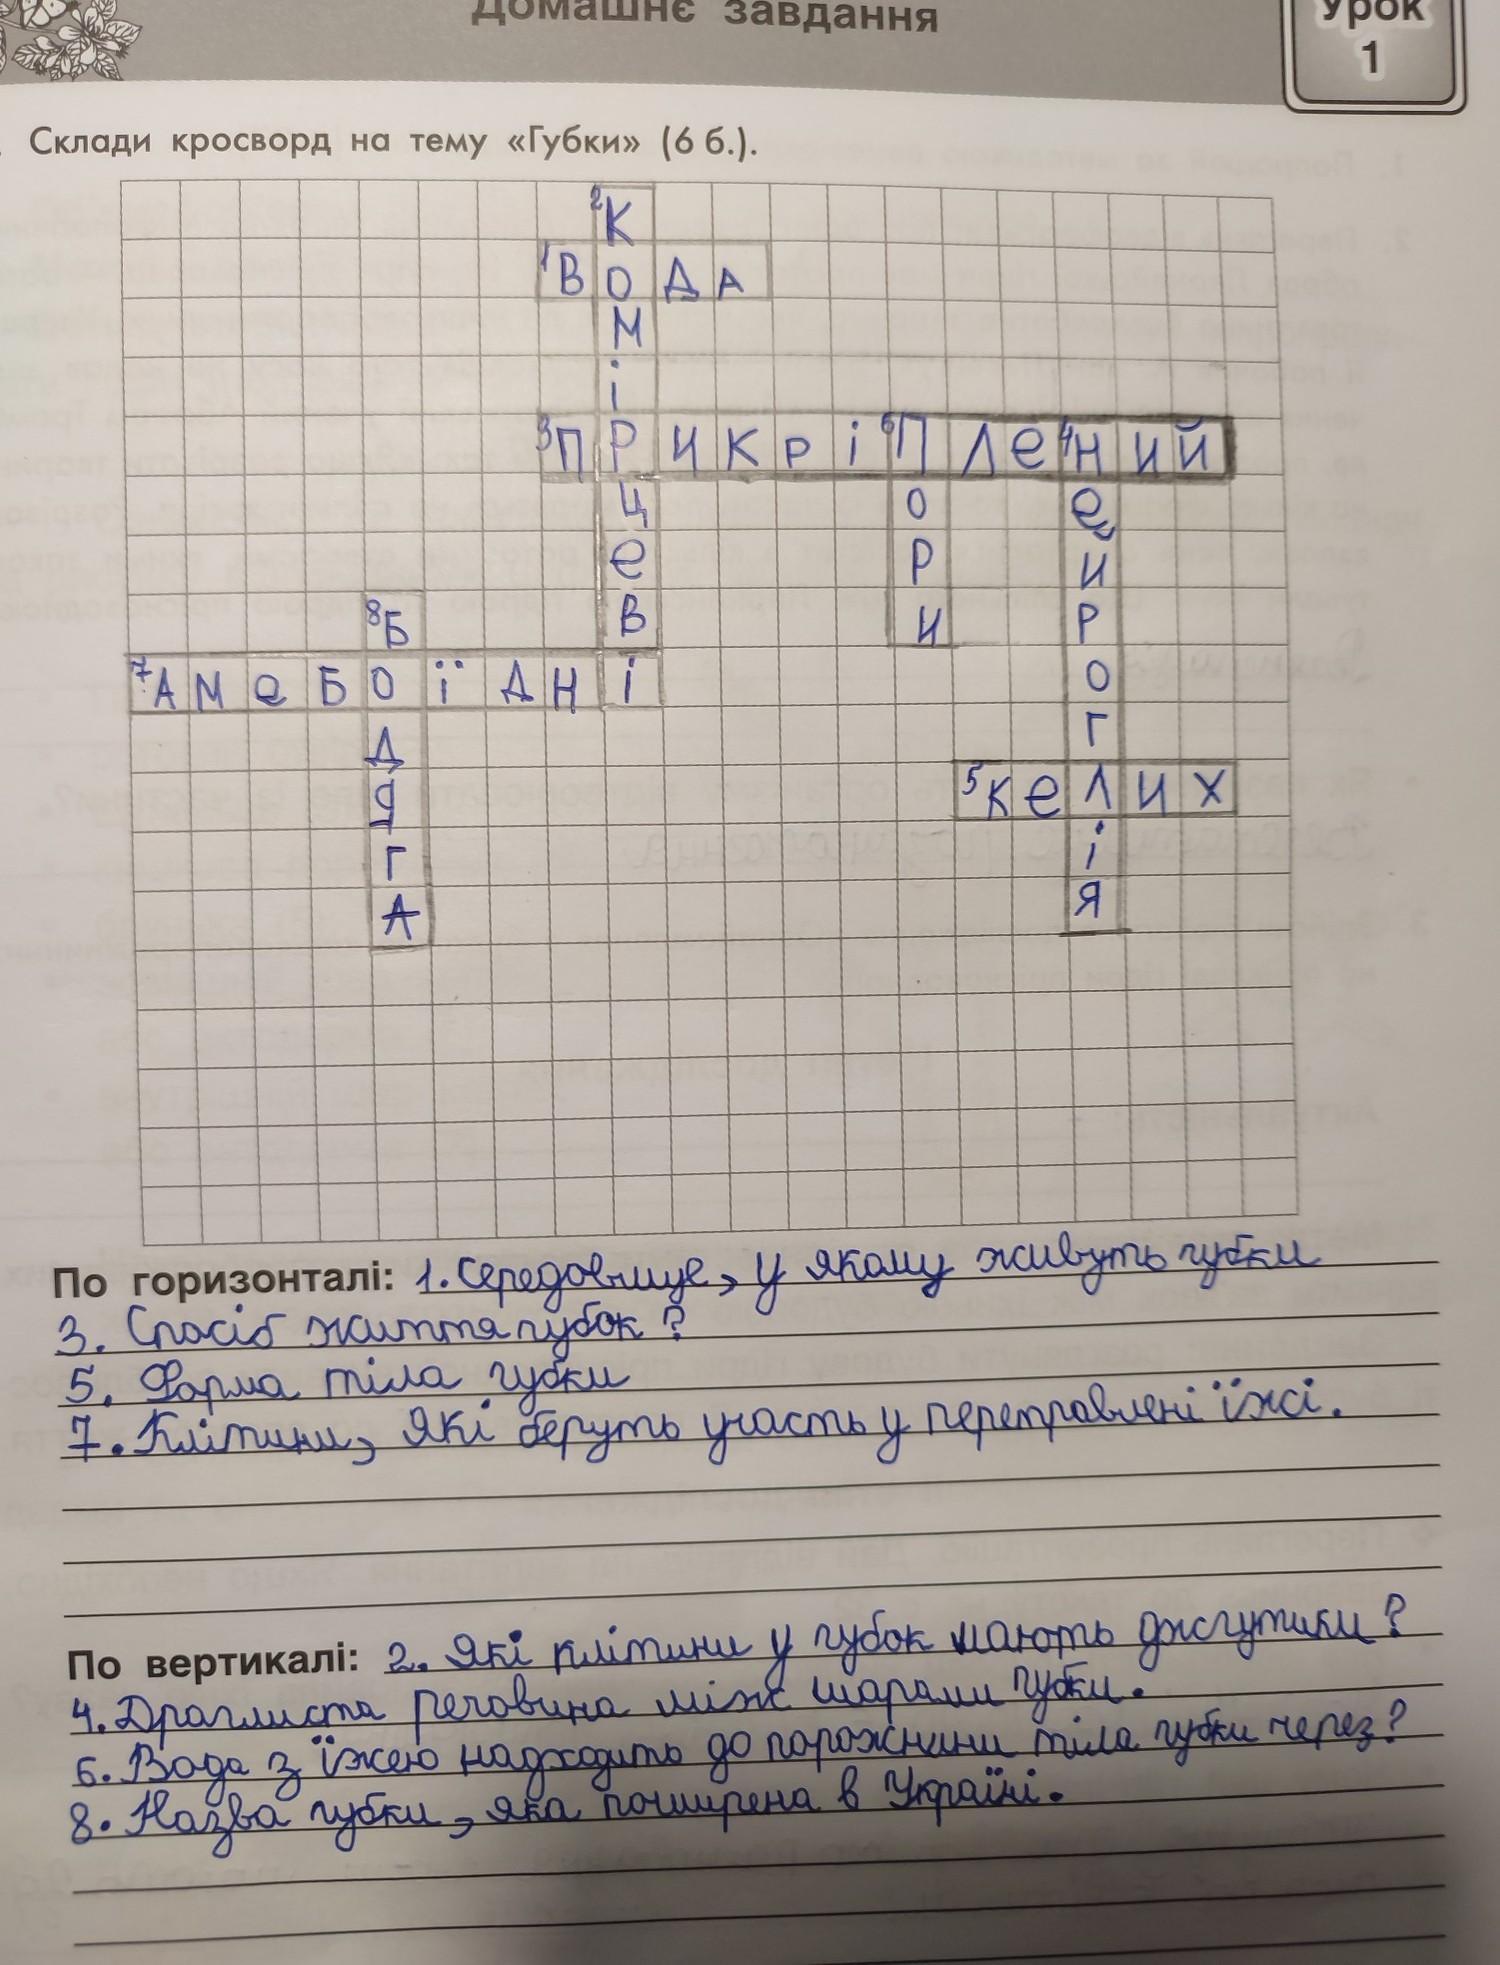 Домашнє завдання
Урок
1
Склади кросворд на тему «Губки» (6 б.).
2К
1ВОДА
М
і
3ПРИКРі6ПЛЕ4НИЙ
Ц О Е
Е Р И
8Б В И Р
7АМЕБОЇДНІ О
Д Г
Я 5КЕЛИХ
Г і
А Я
По горизонталі: 1. Середовище, у якому живуть губки
3. Спосіб життя губок?
5. Форма тіла губки
7. Клітини, які беруть участь у переправлені їжі.
По вертикалі: 2. Які клітини у губок мають джгутики?
4. Драглиста речовина між шарами губки.
6. Вода з їжею надходить до порожнини тіла губки через?
8. Назва губки, яка поширена в Україні.